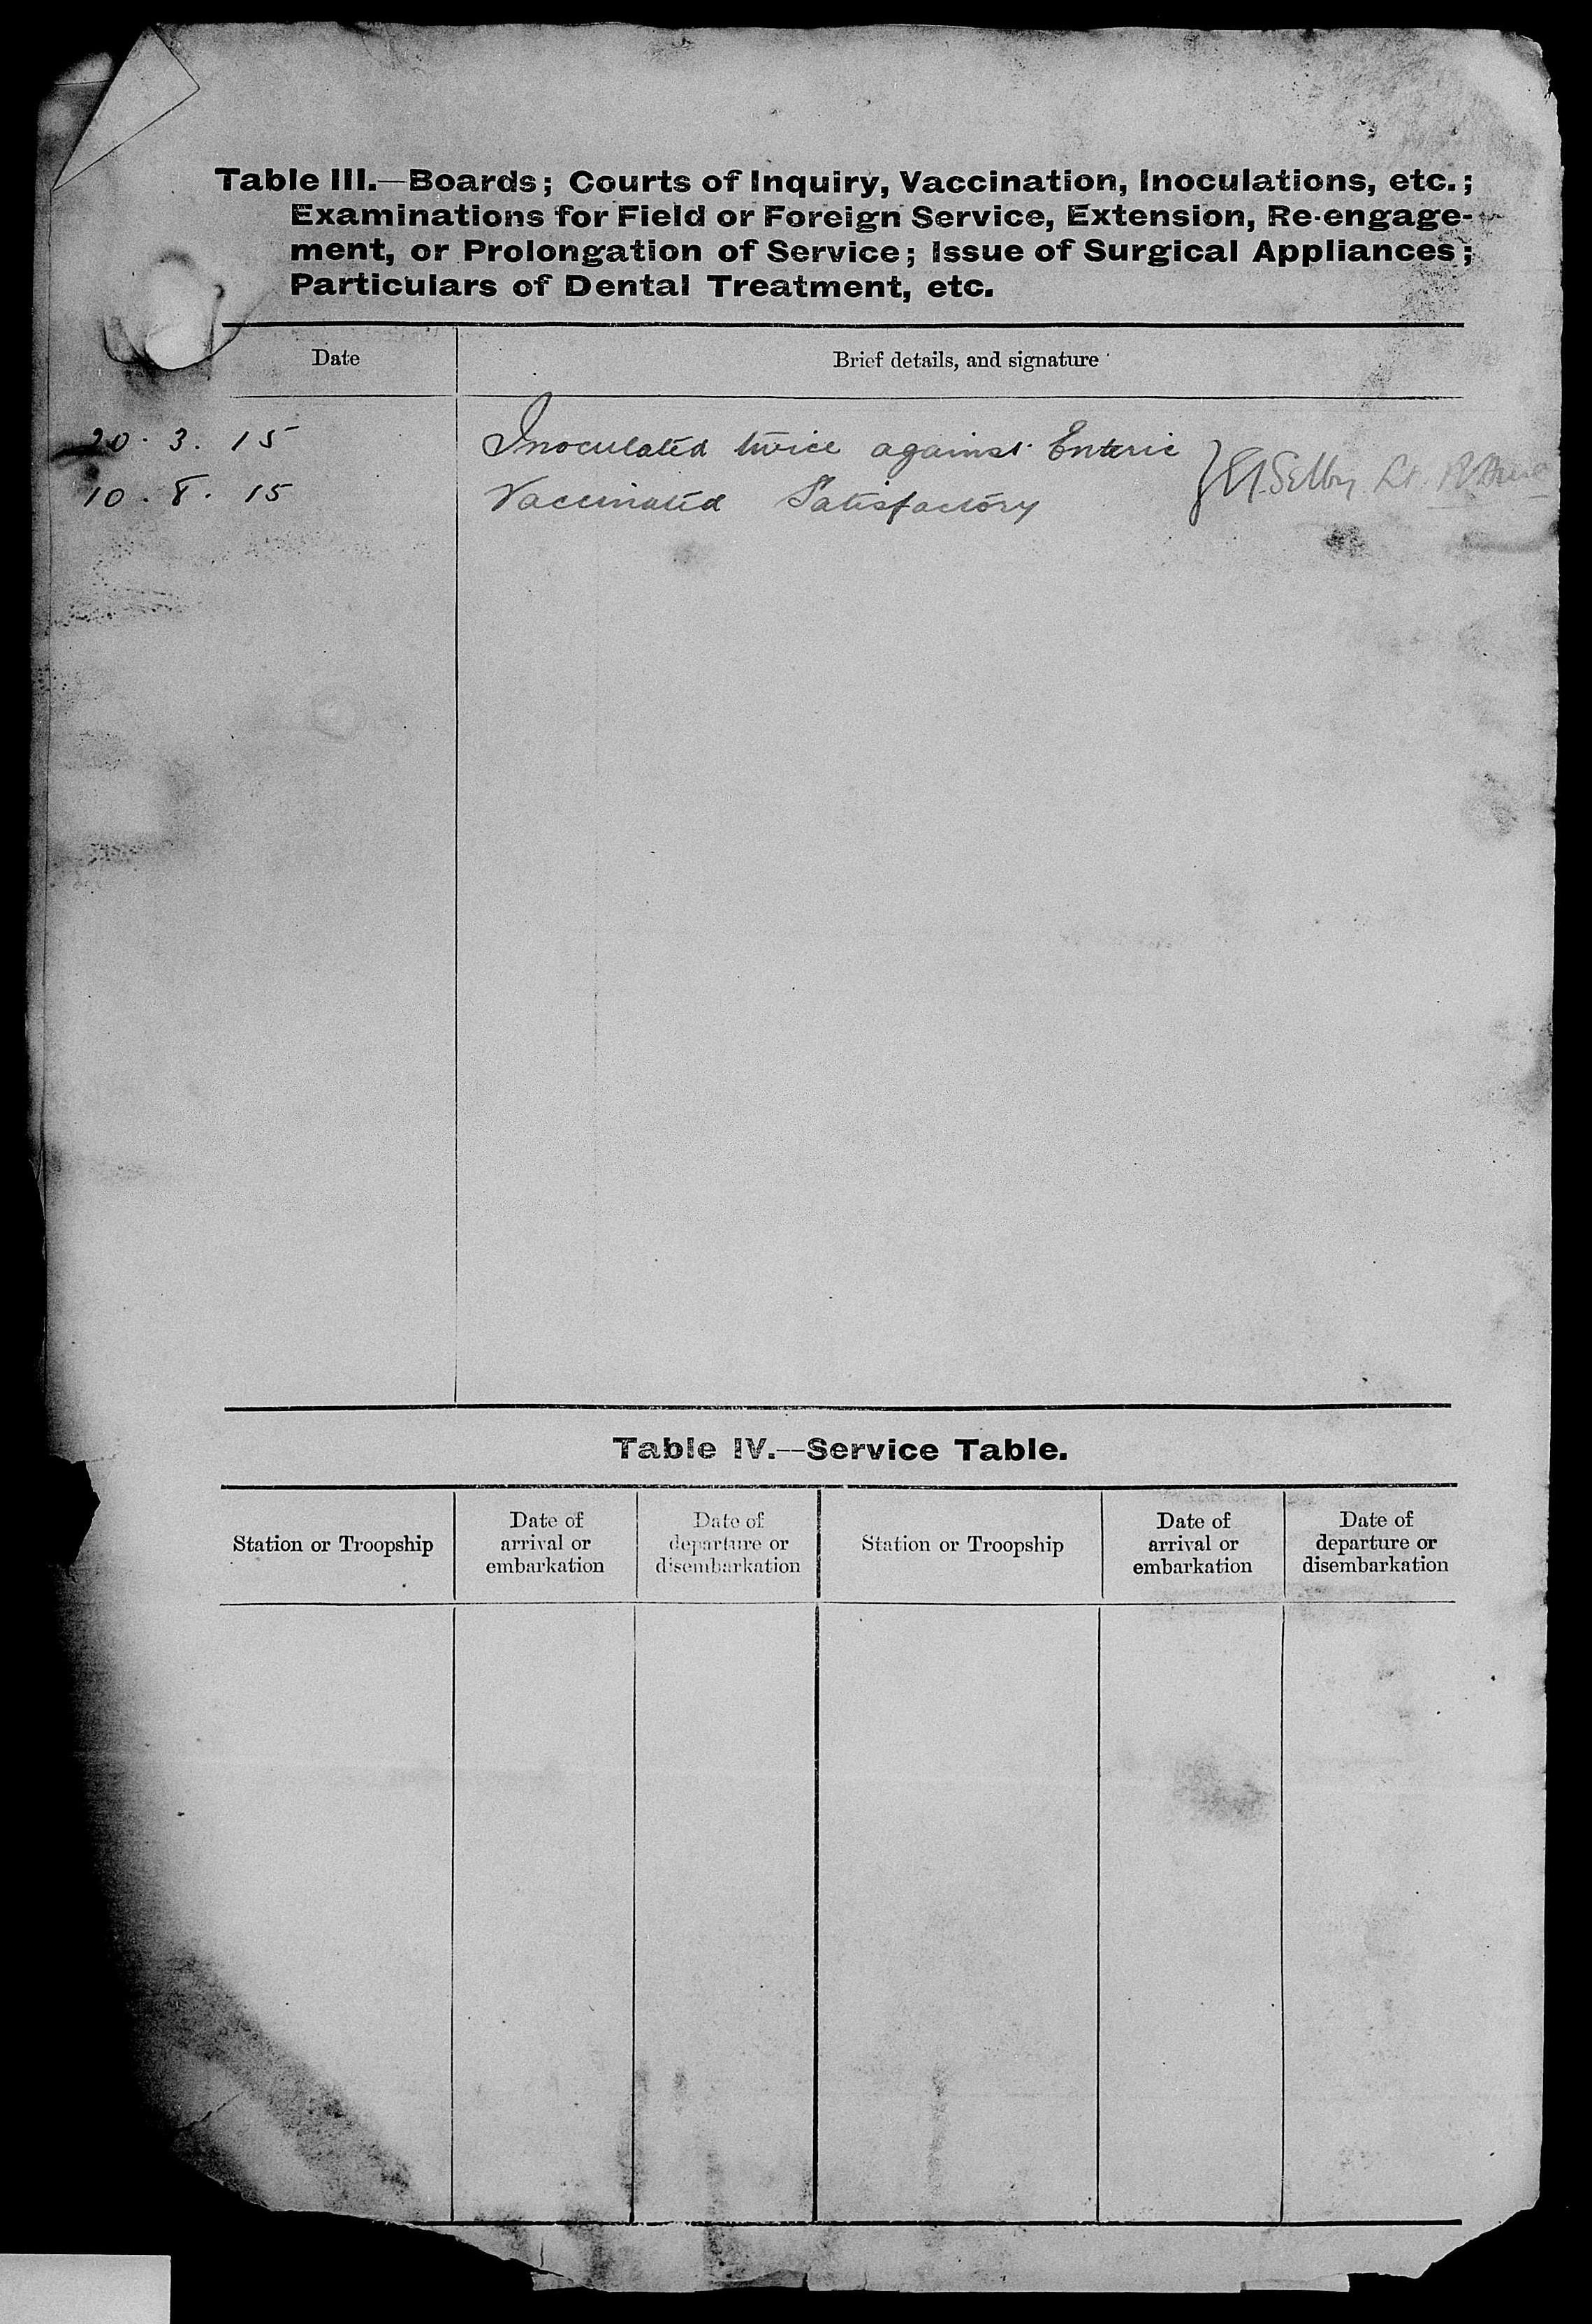 Table III.—Boards; Courts of Inquiry, Vaccination, Inoculations, etc.;
Examinations for Field or Foreign Service, Extension, Re-engage-
ment, or Prolongation of Service; Issue of Surgical Appliances;
Particulars of Dental Treatment, etc.
Date Brief details, and signature
20. 3. 15 Inoculated twice against Enteric
10. 8. 15 Vaccinated Satisfactory
Selby Lt.
Table IV.—Service Table.
Station or Troopship
Date of
arrival or
embarkation
Date of
departure or
disembarkation
Station or Troopship
Date of
arrival or
embarkation
Date of
departure or
disembarkation